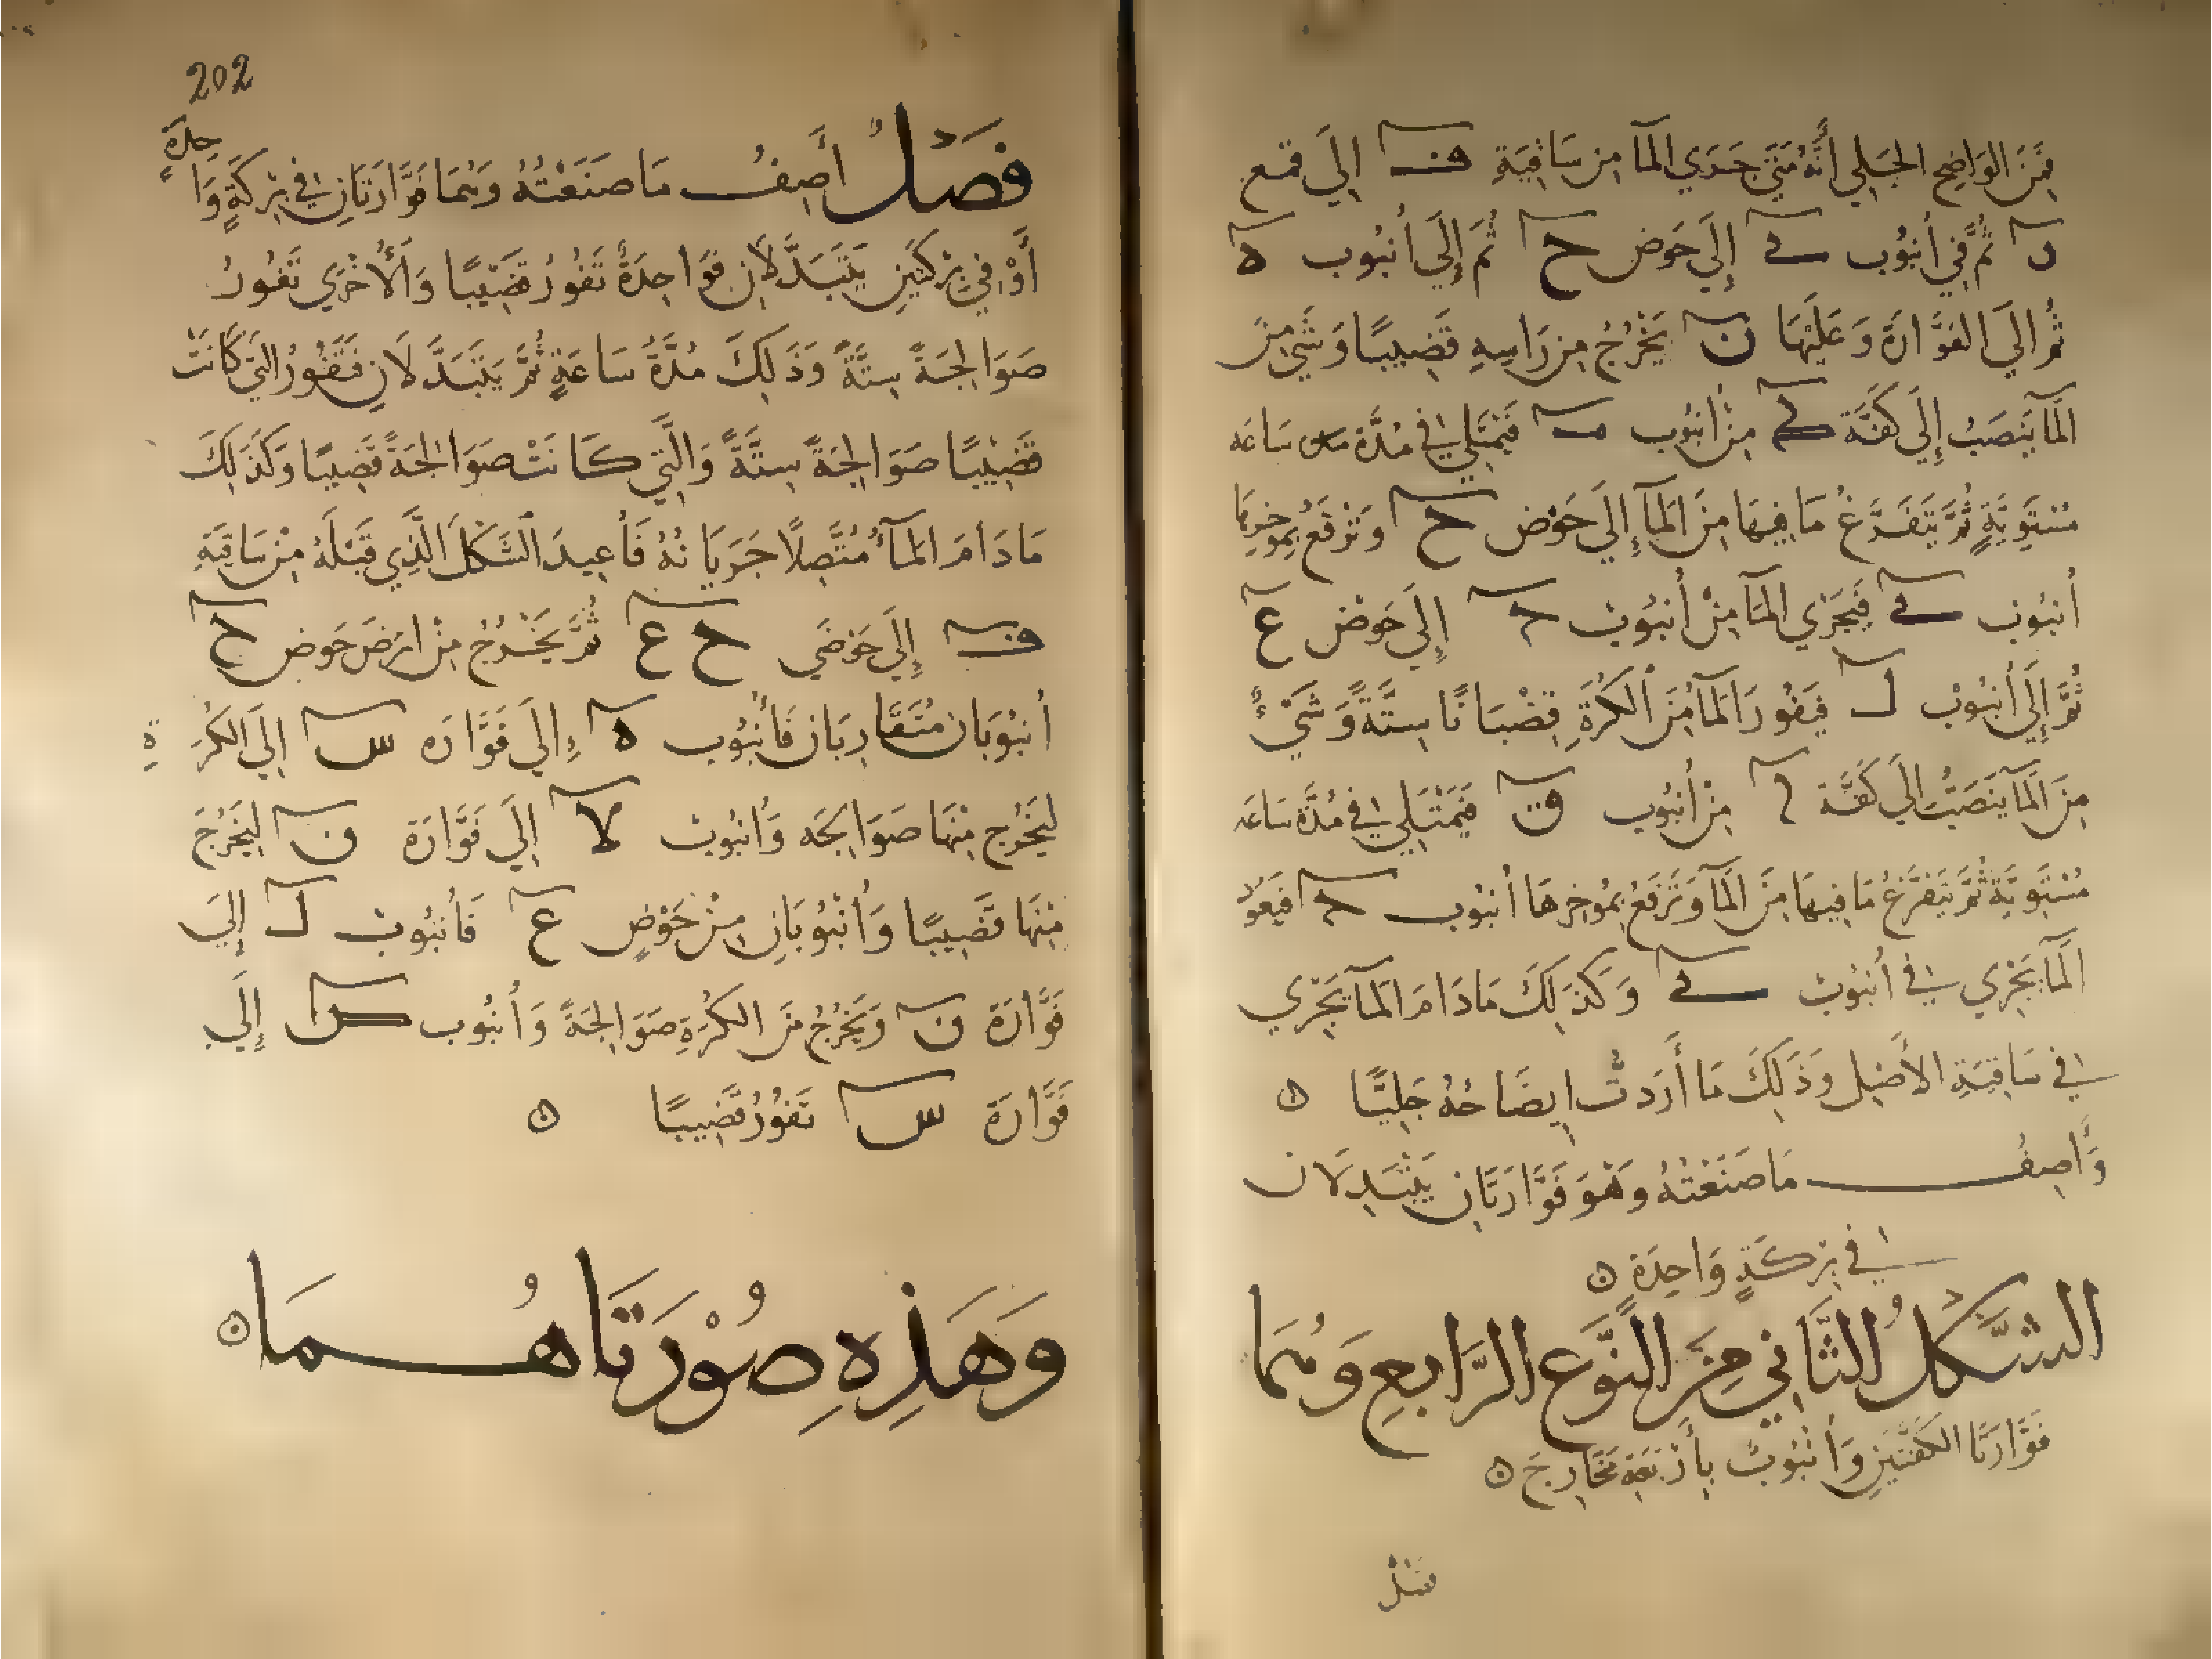 فَمِنَ الوَاضِحِ الجَلِي أَنَّهُ مَتَى جَرَي المآ مِن سَاقِيَةِ ف إلَي قمع
ن ثُمَّ فِي أُنبُوب ي إلَي حَوض ح ثُمَ إلَي أُنبُوب ه
ثُمَّ الَي الفَوَّارَة وَعَلَيْهَا ن يَخْرُجُ مِن رَاسِهِ قَضِيبًا وَشَي مِنَ
المآ يَنصَبُ إلَي كَفَّة ك مِنْ أُنبُوب م فَيَمتَلِي فِي مُدَّة سَاعَه
مُسْتَوِيَةٍ ثُمَّ يَتَفَرَّغُ مَا فِيهَا مِنَ المَآ إلَي حَوْض ح وَتَرْفَعُ بِمُوخِرِهَا
أُنبُوب ي فَيَجْرِي المَآ مِنْ أُنبُوب ط إلَي حَوْض ع
ثُمَّ إلَي أُنبُوبْ ل فَيَفُورَ المَآ مِنَ الكُرَةِ قِضْبَانًا سِتَّةً وَشَيْءٌ
مِنَ المَآ يَنصَبُّ إلَي كَفَّة ل مِنْ أُنبُوب ق فَيَمْتَلِي فِي مُدَّة سَاعَه
مُسْتَوِيَة ثُمَّ يَتَفَرَّغُ مَا فِيهَا مِنَ المَآ وَتَرْفَعُ بِمُوخِرِهَا أُنبُوب ط فَيَعُودُ
المَآ يَجْرِي فِي أُنبُوب ي وَكَذَلِكَ مَادَامَ المآ يَجْرِي
فِي سَاقِيَةِ الأَصْلِ وَذَلِكَ مَا أَرَدتُّ ايضَاحُهُ جَلِيًّا ٥
وَأَصِفُ مَا صَنَعْتُهُ وَهُوَ فَوَّارَتَانِ يَتَبَدَّلَان
فِي بِرْكَةٍ وَاحِدَة ٥
الشَّكلُ الثَّانِي مِنَ النَّوعِ الرَّابِعِ وَهُمَا
فَوَّارَتَا الكَفَّتَيْنِ وَأُنبُوبٌ بِأَرْبَعَةِ مَخَارِجَ ٥
فصل
202
فَصْلٌ أَصِفُ مَا صَنَعْتُهُ وَهُمَا فَوَّارَتَانِ فِي بِرْكَةٍ وَا حِدَةٍ
أَوْ فِي بِرْكَتَيْنِ يَتَبَدَّلَانِ فَوَاحِدَةٌ تَفُورُ قَضِيبًا وَالأُخْرَي تَفُورُ
صَوَالِجَةً سِتَّةً وَذَلِكَ مُدَّةُ سَاعَةٍ ثُمَّ يَتَبَدَّلَانِ فَتَفُورُ الَّتِي كَانَتْ
قَضِيبًا صَوَالِجَةً سِتَّةً وَالَّتِي كَانَتْ صَوَالِجَةً قَضِيبًا وَكَذَلِكَ
مَادَامَ المَآءُ مُتَّصِلًا جَرَيَانُهُ فَأُعِيدَ الشَّكْلَ الَّذِي قَبْلَهُ مِنْ سَاقِيَةِ
ف إلَي حَوْضَي ح ع ثُمَّ يَخْرُجُ مِنْ ارْضِ حَوض ح
أُنبُوبَان مُتَقَارِبَان فَأُنبُوب ه إلَي فَوَّارَه س إلَي الكُرَ ةِ
لِيَخْرُج مِنْهَا صَوَالِجَه وَأُنبُوبْ لا إلَي فَوَّارَة ن لِيَخْرُجَ
مِنْهَا قَضِيبًا وَأُنْبُوبَانِ مِنْ حَوْضِ ع فَأُنبُوبْ ل إلَي
فَوَّارَة ن وَيَخْرُجُ مِنَ الكُرَةِ صَوَالِجَةً وَأُنبُوب ص إلَي
فَوَّارَة س تَفُورُ قَضِيبًا ٥
وَهَذِهِ صُوْرَتَاهُمَا ٥